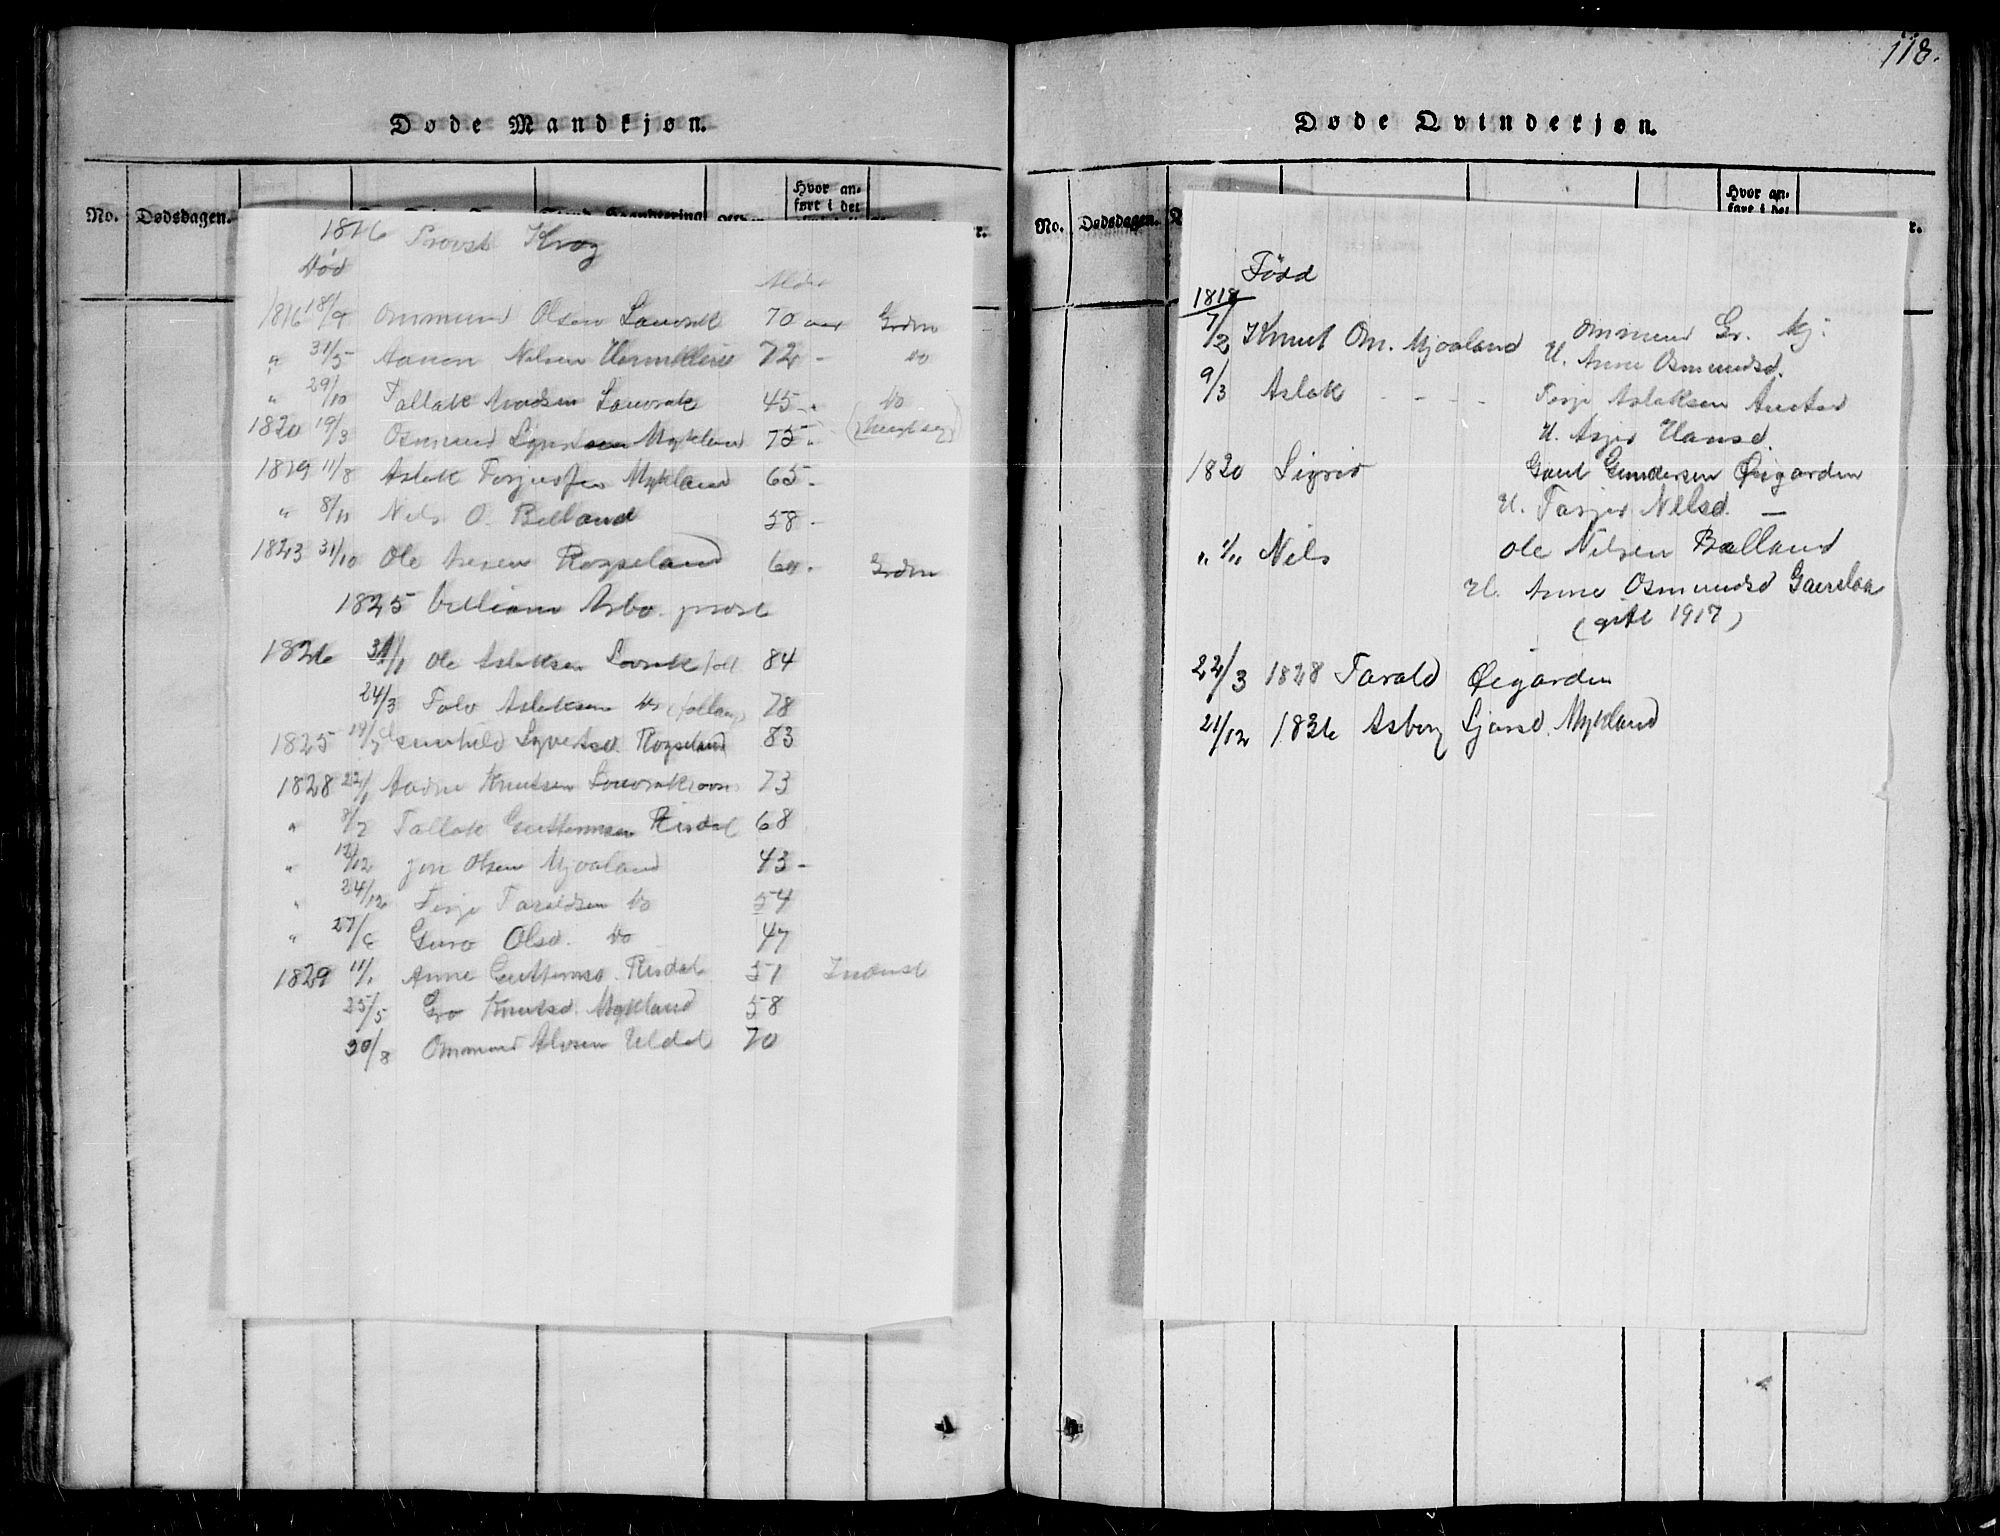 Døde Mandkjøn.
No. Dødsdagen.
Hvor an-
ført i det
1816 Provst Krog
Død
Alder
1816 18/9 Ommund Olsen Lauvrak 70 aar Grdm
" 31/5 Aanon Nilsen 72 - do
" 29/10 Tallak Lauvrak 45 - do
1820 19/3 Osmund Mykland 75 -
1819 11/8 Aslak Mykland 65 -
" 8/11 Nils O. Belland 58 -
1823 31/10 Ole Rogseland 60 - Grdm
1825 William Arbo prost
1826 31/1 Ole Aslaksen Lovrak 84
24/3 Folv Aslaksen do 78
1825 Gunhild Syvertsd. Rogseland 83
1828 22/1 Aadne Knutsen 73
" 8/2 Tallak Guttormsen Risdal 68
" 12/12 Jon Olsen Mjoaland 43 -
" 24/12 Terje Taraldsen do 54
" 27/6 Guro Olsd. do 47
1829 11/1 Anne Guttormsd. Risdal 51 Inderst
25/5 Gro Knutsd. Mykland 58
30/8 Ommund Uldal 70
118.
Døde Qvindekjøn.
No. Dødsdagen.
Hvor an-
ført i det
Född
1818
7/2 Knut Om. Mjoaland Ommund Gr. Mj.
H. Anne Osmundsd.
9/3 Aslak - - - Terje Aslaksen Austad
H. Asjer Hansd.
1820 Sigrid Gaut Gundersen Øigarden
H. Torjer Nilsd. —
" 1/11 Nils Ole Nilsen Balland
H. Anne Osmundsd
(gift 1917)
22/3 1828 Tarald Øigarden
21/12 1826 Asberg Mykland